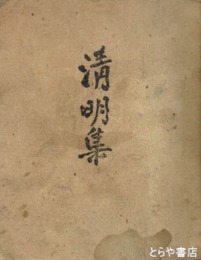 清明集
© とらや書店